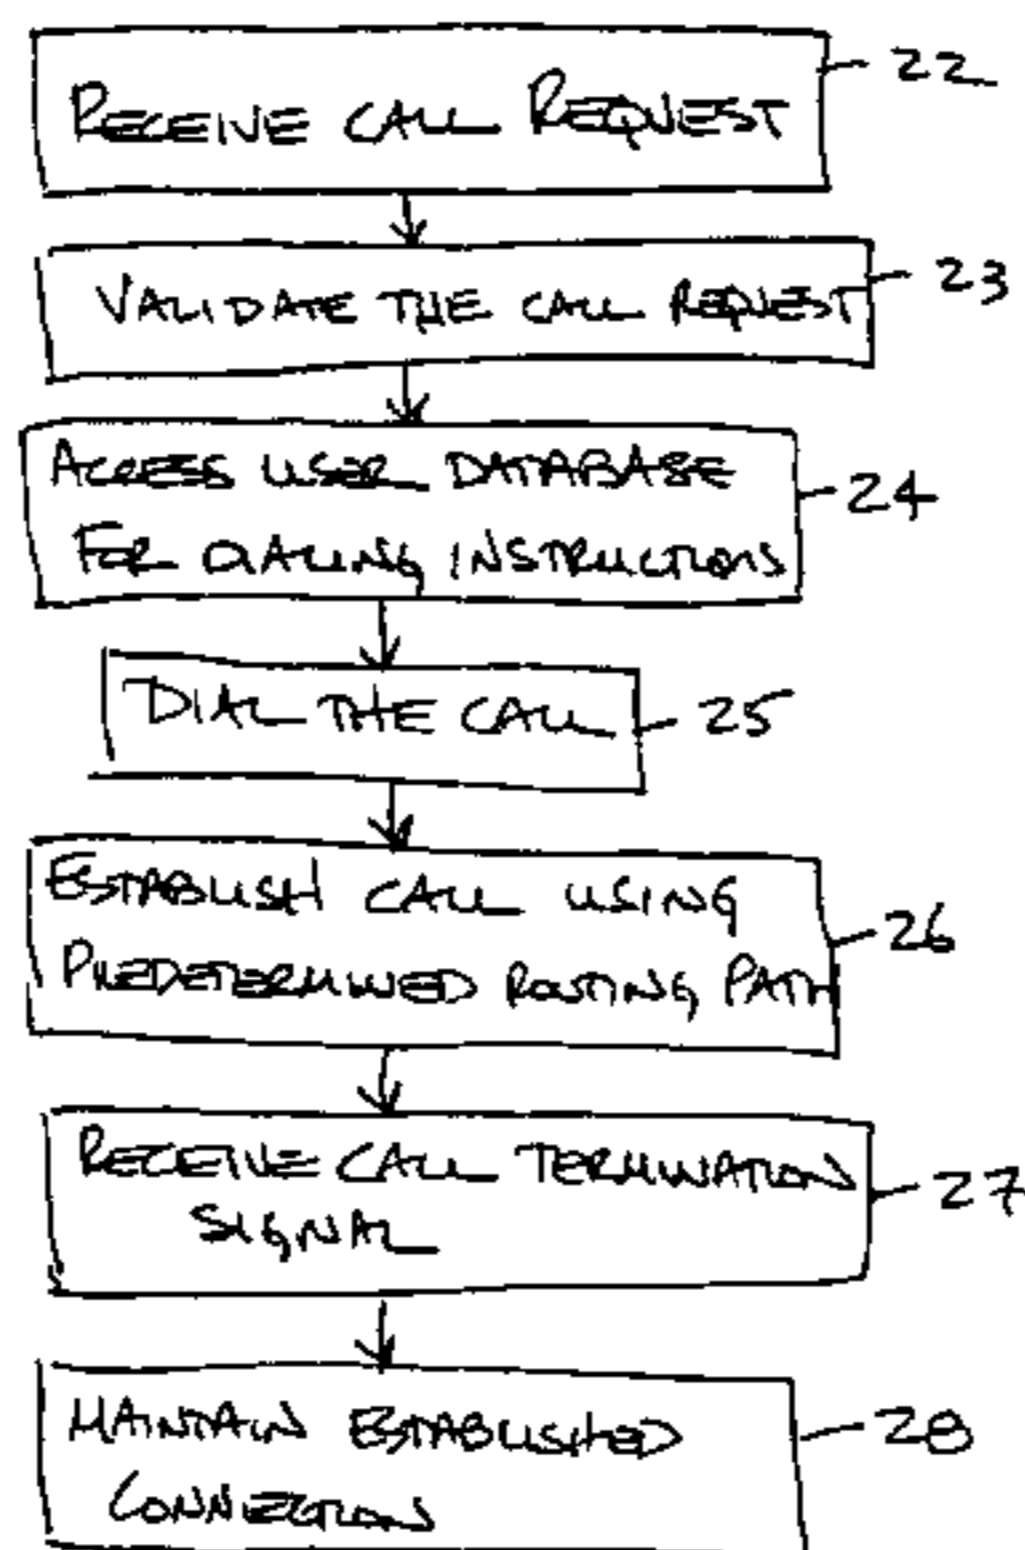 RECEIVE CALL REQUEST 22
VALIDATE THE CALL REQUEST 23
ACCESS USER DATABASE 24
FOR DIALING INSTRUCTIONS
DIAL THE CALL 25
ESTABLISH CALL USING 26
PREDETERMINED ROUTING PATH
RECEIVE CALL TERMINATION 27
SIGNAL
MAINTAIN ESTABLISHED 28
CONNECTION